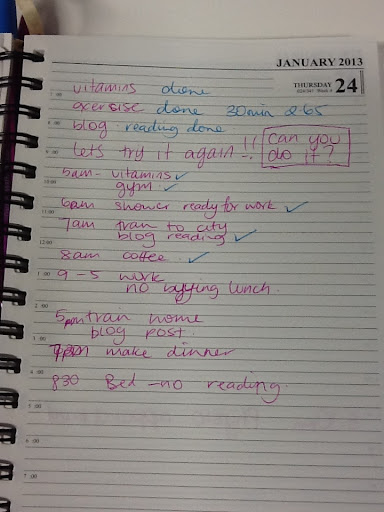 JANUARY 2013
THURSDAY
24
vitamins done
exersise done 30min 2.65
blog reading done
lets try it again -!!
can you
do it?
5am - vitamins ✓
gym ✓
6am shower ready for work ✓
7am train to city
blog reading ✓
8am coffee ✓
9-5 work
no buying lunch.
5pm train home
blog post.
make dinner
830 Bed - no reading.
7:00
8:00
9:00
10:00
11:00
12:00
1:00
2:00
3:00
4:00
5:00
6:00
7:00